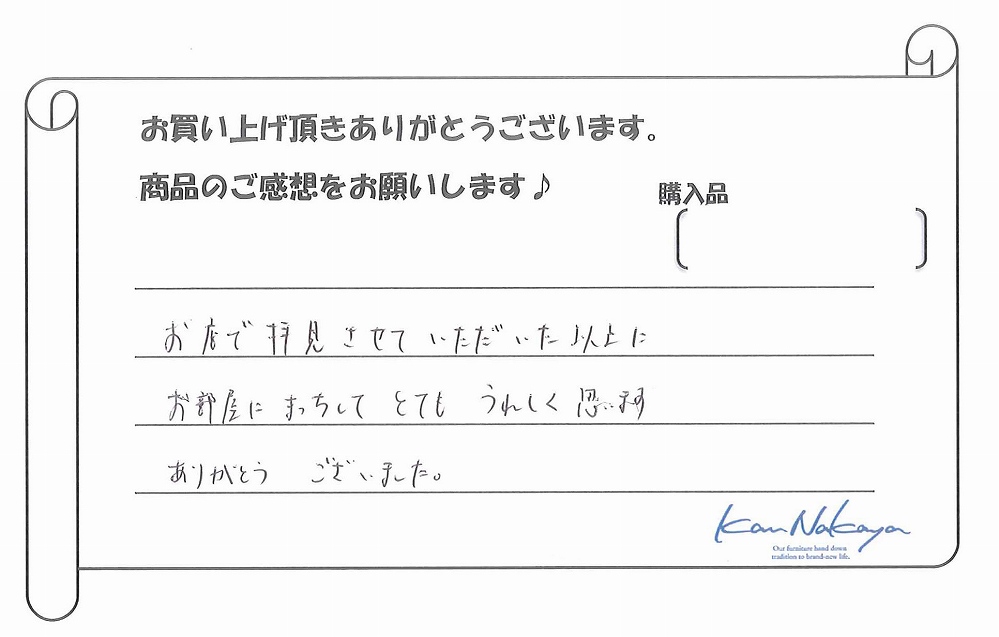 お買い上げ頂きありがとうございます。
商品のご感想をお願いします♪
購入品
お店で拝見させていただいた以上に
お部屋にまっちしてとてもうれしく思います
ありがとうございました。
KanNakaya
Our furniture hand down
tradition to brand-new life.